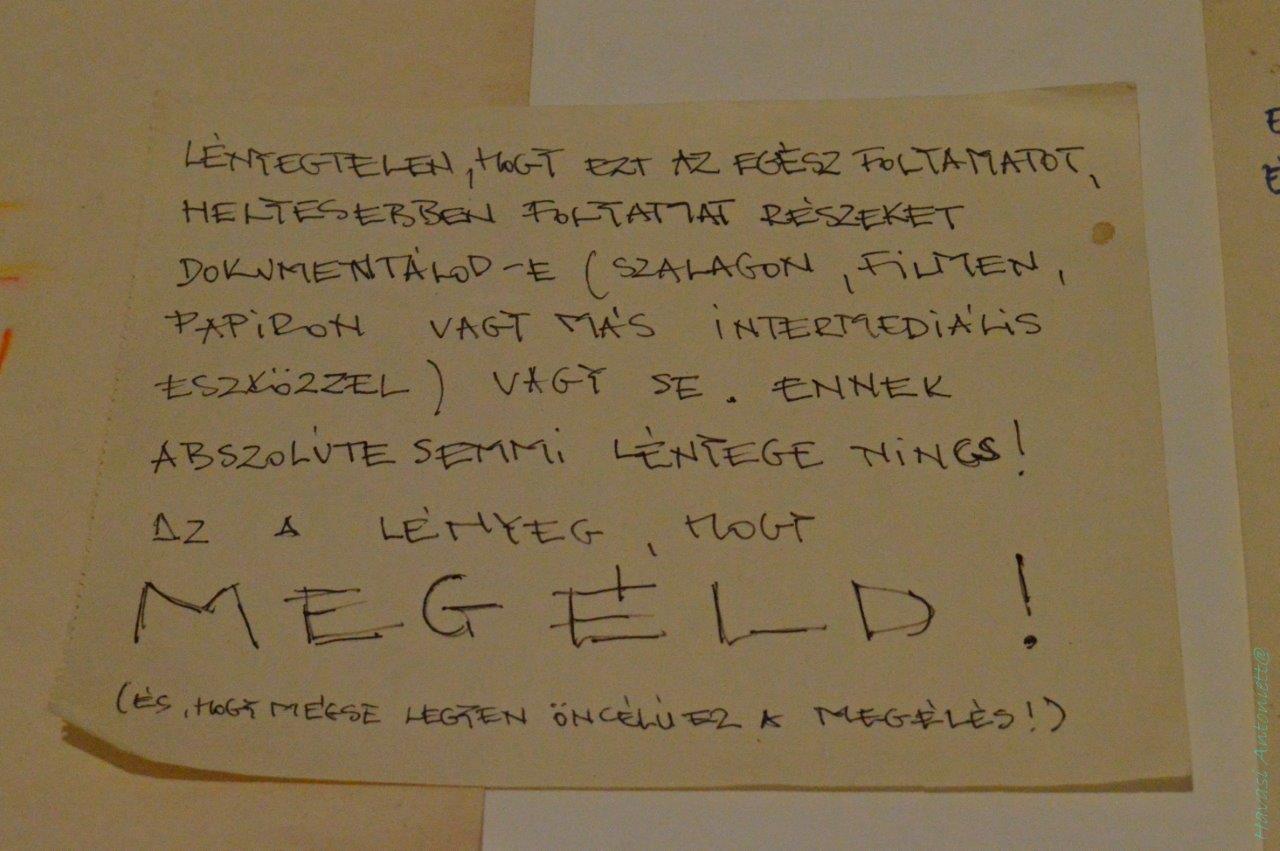 LÉNYEGTELEN, HOGY EZT AZ EGÉSZ FOLYAMATOT,
HELYESEBBEN FOLYATTAT RÉSZEKET
DOKUMENTÁLOD-E (SZALAGON, FILMEN,
PAPIRON VAGY MÁS INTERMEDIÁLIS
ESZKÖZZEL) VAGY SE. ENNEK
ABSZOLÚTE SEMMI LÉNYEGE NINCS!
AZ A LÉNYEG, HOGY
MEGÉLD!
(ÉS, HOGY MÉGSE LEGYEN ÖNCÉLÚ EZ A MEGÉLÉS!)
Havasi Antonett@